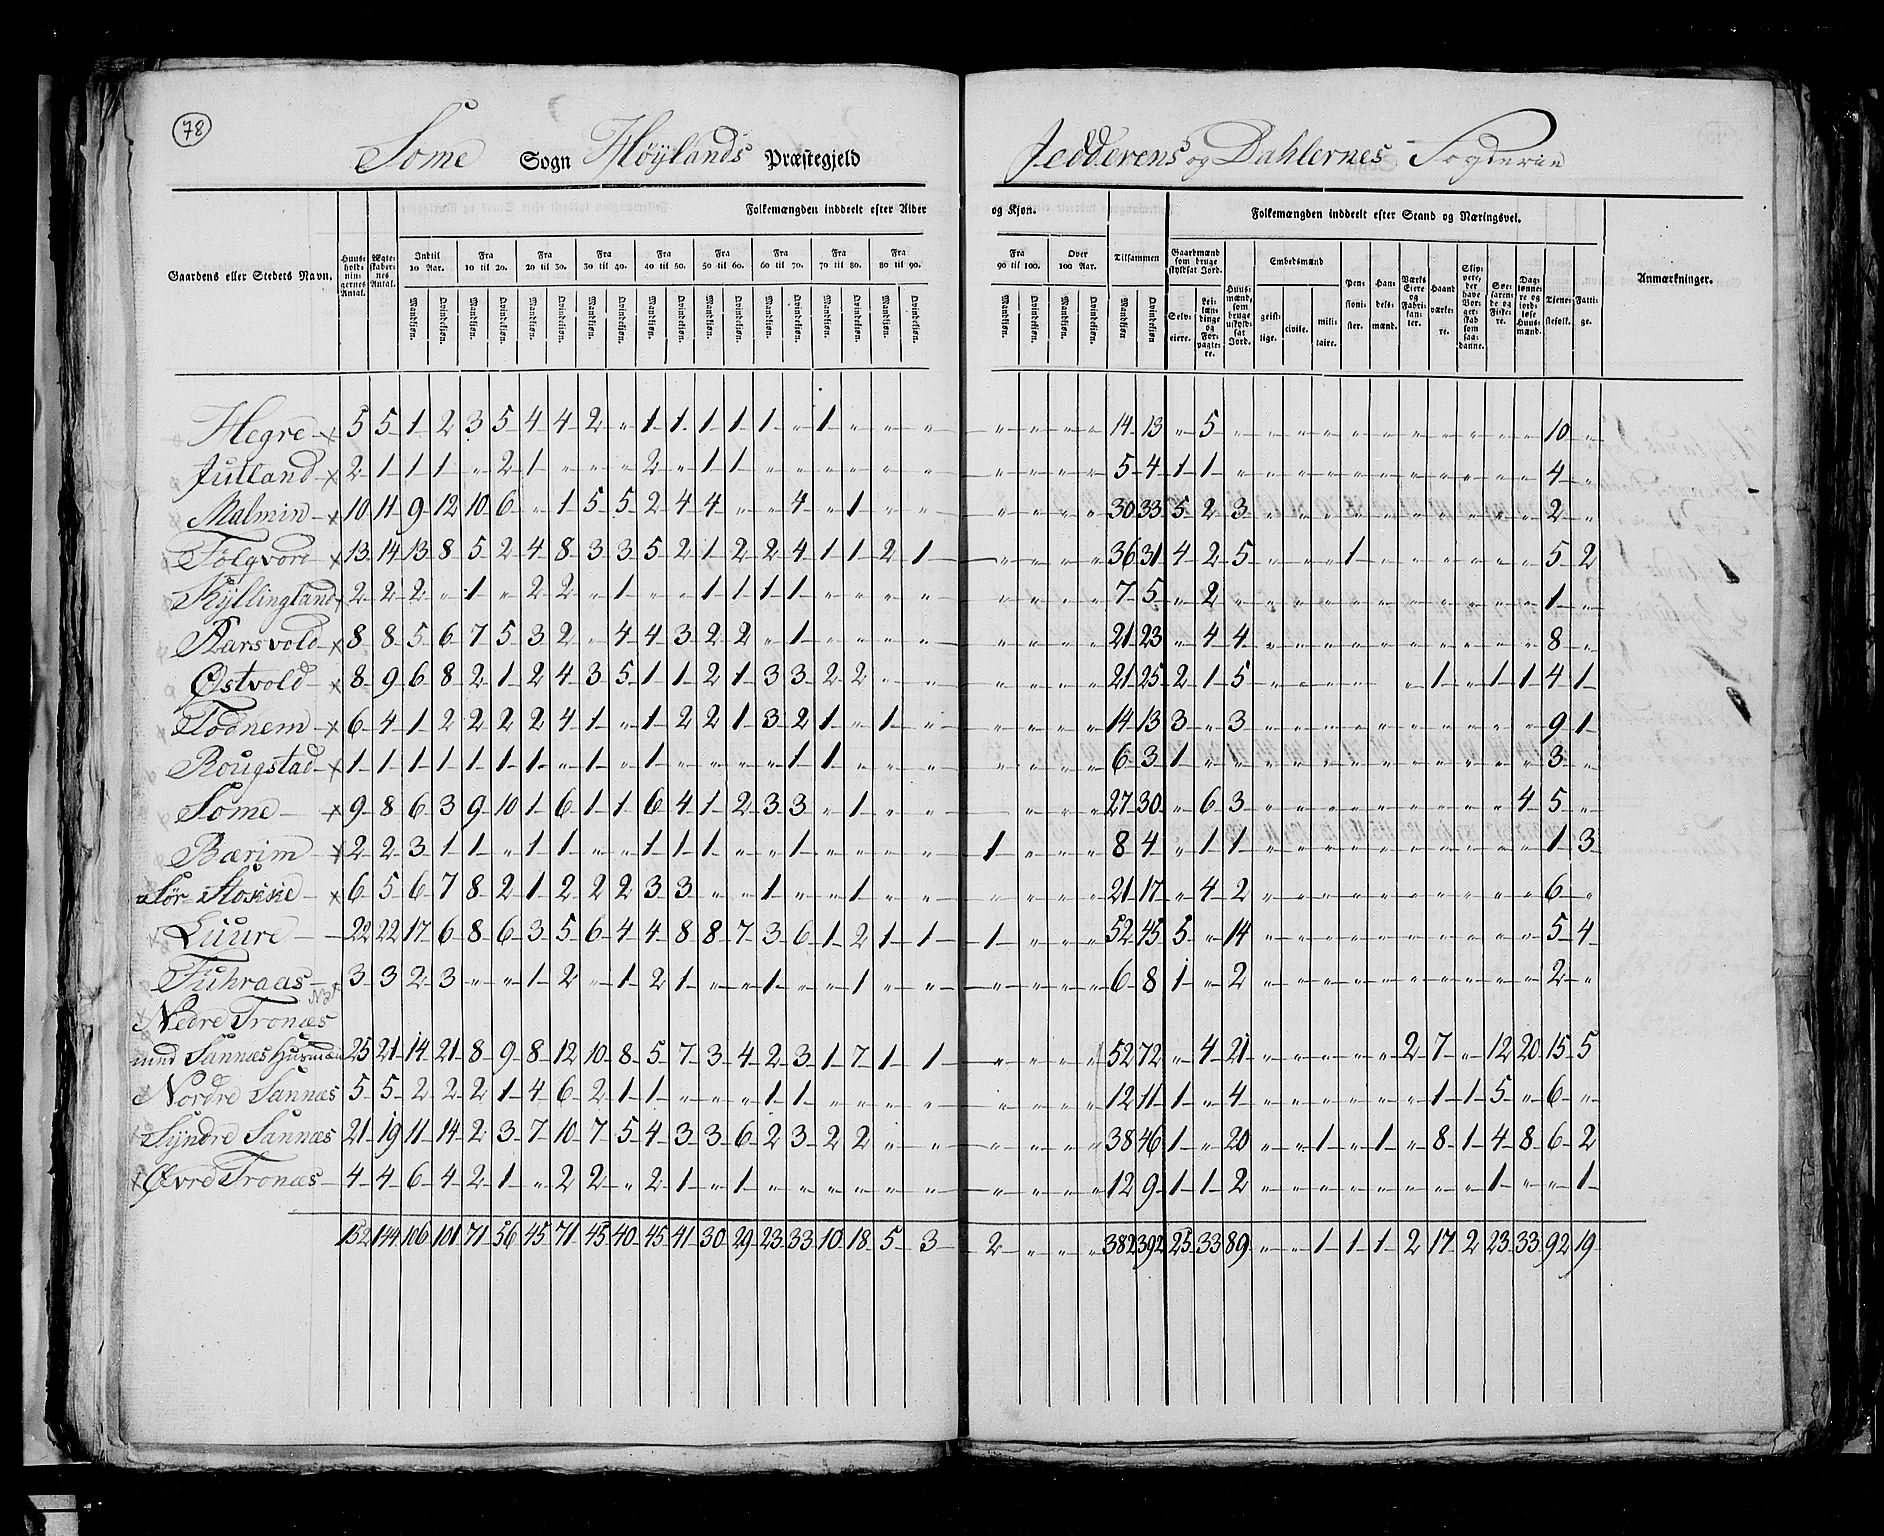 78
Some Sogn Höylands Præstegjeld Jedderens og Dahlernes Fogderie
Folkemængden inddeelt efter Alder og Kjøn. Folkemængden inddeelt efter Stand og Næringsvei.
Gaardens eller Stedets Navn. Huusholdningernes Antal. Ægteskabernes Antal. Indtil 10 Aar. Fra 10 til 20. Fra 20 til 30. Fra 30 til 40. Fra 40 til 50. Fra 50 til 60. Fra 60 til 70. Fra 70 til 80. Fra 80 til 90. Fra 90 til 100. Over 100 Aar. Tilsammen Gaardmænd som bruge skyldsat Jord. Huusmænd, som bruge uskyldsat Jord. Embedsmænd Pensionister. Handelsmænd. Værks Eiere og Fabrikanter. Haandværkere. Skippere, der have Borgerskab som saadanne. Søefarende og Fiskere. Daglønnere og jordløse Huusmænd. Tjenestefolk. Fattige. Anmærkninger.
Mandkjøn. Qvindekjøn. Mandkjøn. Qvindekjøn. Mandkjøn. Qvindekjøn. Mandkjøn. Qvindekjøn. Mandkjøn. Qvindekjøn. Mandkjøn. Qvindekjøn. Mandkjøn. Qvindekjøn. Mandkjøn. Qvindekjøn. Mandkjøn. Qvindekjøn. Mandkjøn. Qvindekjøn. Mandkjøn. Qvindekjøn. Mandkjøn. Qvindekjøn. Selveiere. Leilændinge og Forpagtere. geistlige. civile. militaire.
Hegre 5 5 1 2 3 5 4 4 2 " 1 1 1 1 1 " 1 " " " " " " " 14 13 " 5 " " " " " " " " " " " 10 "
Julland 2 1 1 1 " 2 1 " " " 2 " 1 1 " " " " " " " " " " 5 4 1 1 " " " " " " " " " " " 4 "
Malmin 10 11 9 12 10 6 " 1 5 5 2 4 4 " " 4 " 1 " " " " " " 30 33 5 2 3 " " " " " " " " " " 2 "
Folgvord 13 14 13 8 5 2 4 8 3 3 5 2 1 2 2 4 1 1 2 1 " " " " 36 31 4 2 5 " " " 1 " " " " " " 5 2
Kyllingland 2 2 2 " 1 " 2 2 " 1 " " 1 1 1 1 " " " " " " " " 7 5 " 2 " " " " " " " " " " " 1 "
Aarsvold 8 8 5 6 7 5 3 2 " 4 4 3 2 2 " 1 " " " " " " " " 21 23 " 4 4 " " " " " " " " " " 8 "
Østvold 8 9 6 8 2 1 2 4 3 5 1 1 2 1 3 3 2 2 " " " " " " 21 25 2 1 5 " " " " " 1 " 1 1 4 1
Todnem 6 4 1 2 2 2 2 4 1 " 1 2 2 1 3 2 1 " 1 " " " " " 14 13 3 " 3 " " " " " " " " " " 9 1
Rougstad 1 1 1 1 1 1 1 " 1 " 1 " " " " 1 1 " " " " " " " 6 3 1 " " " " " " " " " " " " 3 "
Some 9 8 6 3 9 10 1 6 1 1 6 4 1 2 3 3 " 1 " " " " " " 27 30 " 6 3 " " " " " " " " " 4 5 "
Bærim 2 2 3 1 1 " 1 1 " " 1 1 1 " " 1 " " " " 1 " " " 8 4 " 1 1 " " " " " " " " " " 1 3
Sør Stokke 6 5 6 7 8 2 1 2 2 2 3 3 " " 1 " " 1 " " " " " " 21 17 " 4 2 " " " " " " " " " " 6 "
Luure 22 22 17 6 8 6 3 5 6 4 4 8 8 7 3 6 1 2 1 1 1 " " " 52 45 5 " 14 " " " " " " " " " " 5 4
Fuhraas 3 3 2 3 " " 1 2 " 1 2 1 " " 1 " " 1 " " " " " " 6 8 1 " 2 " " " " " " " " " " 2 "
Nedre Tronæs
med Sannæs Husmænd 25 21 14 21 8 9 8 12 10 8 5 7 3 4 2 3 1 7 1 1 " " " " 52 72 " 4 21 " " " " " 2 7 " 12 20 15 5
Nordre Sannæs 5 5 2 2 2 1 4 6 2 1 1 " " " 1 1 " " " " " " " " 12 11 1 " 4 " " " " " " 1 1 5 " 6 "
Syndre Sannæs 21 19 11 14 2 3 7 10 7 5 4 3 3 6 2 3 2 2 " " " " " " 38 46 1 " 20 " " 1 " 1 " 8 1 4 8 6 2
Øvre Tronæs 4 4 6 4 2 1 " 2 2 " 2 1 " 1 " " " " " " " " " " 12 9 1 1 2 " " " " " " " " 1 " " 1
152 144 106 101 71 56 45 71 45 40 45 41 30 29 23 33 10 18 5 3 2 " " " 382 392 25 33 89 " " 1 1 1 2 17 2 23 33 92 19